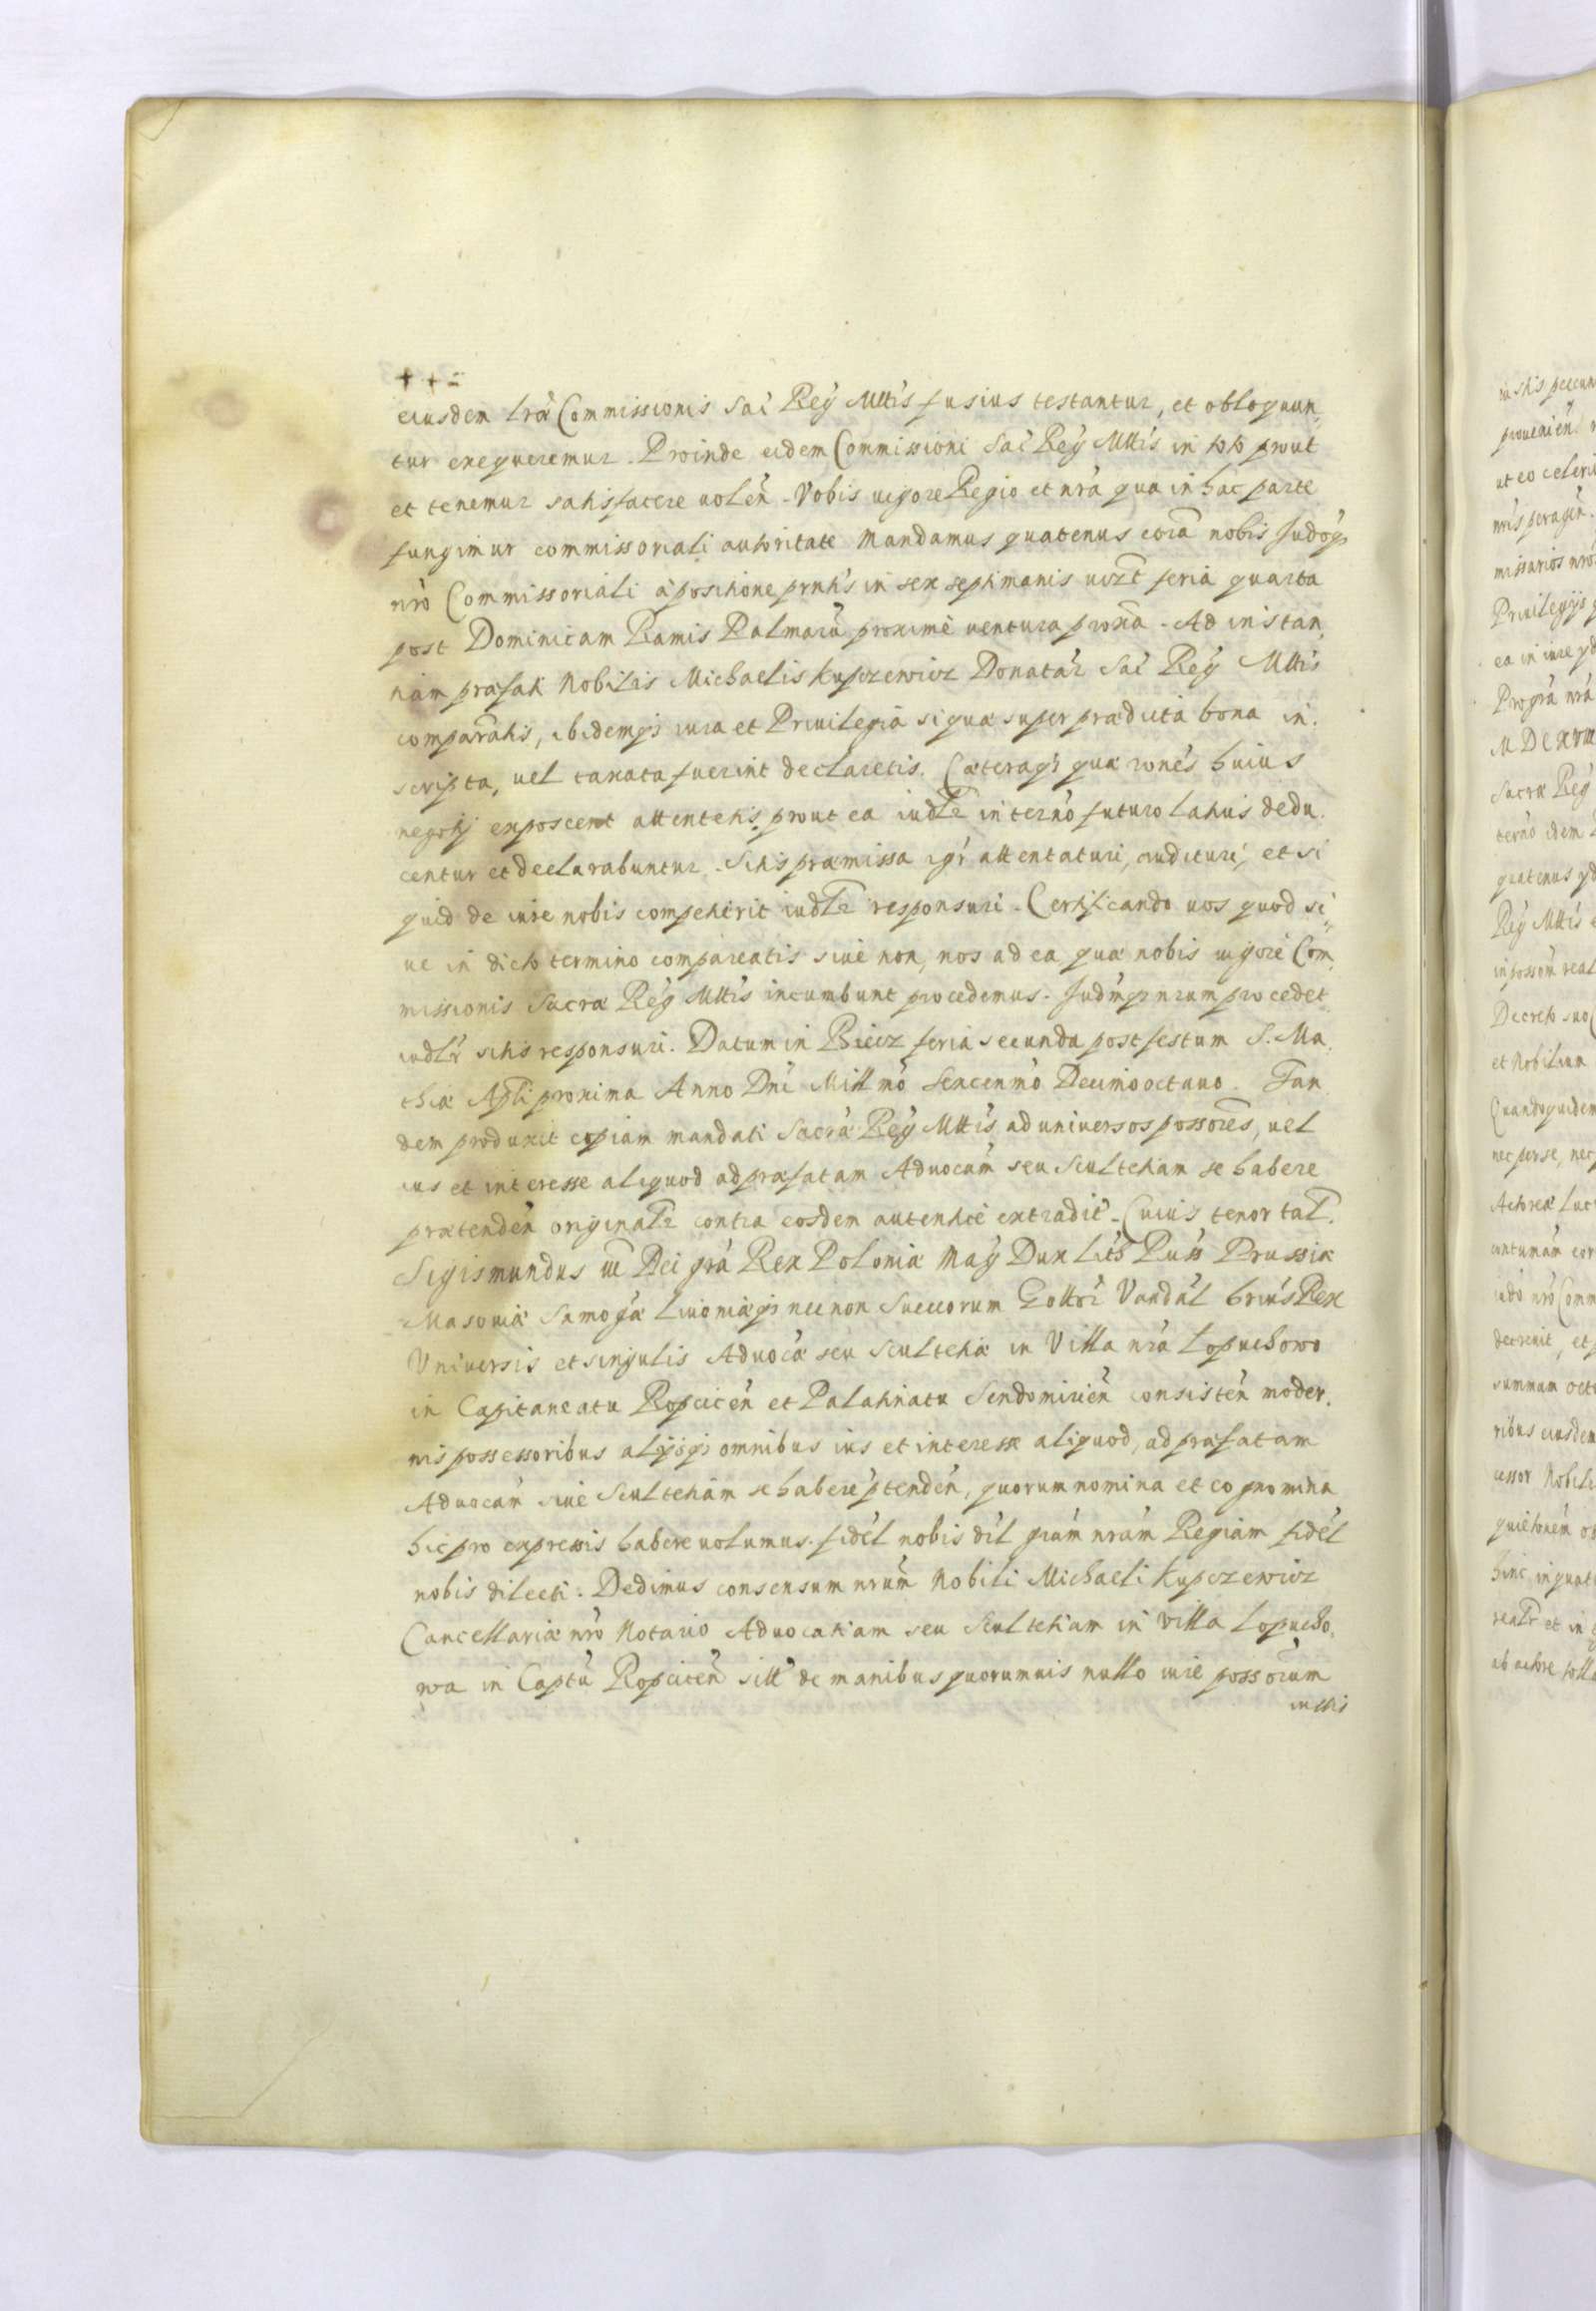 eiusdem lr̃æ Commissionis Sac̃ Reg̃ Mttis fusius testantur, et obloquun,
tur exequeremur. Proinde eidem Commissioni Sac̃ Reg̃ Mttis in toto prout
et tenemur satisfacere uolen̄. Vobis uigore Regio et nr̃a qua in hac parte
fungimur commissoriali autoritate Mandamus quatenus corã nobis Judõqȝ
nrõ Commissoriali á positione prntís in sex septimanis uizt feria quarta
post Dominicam Ramis Palmarũ proximè uentura proxa. Ad instan,
tiam præfati Nobilis Michaelis Kupczewicz Donatar̃ Sac̃ Reg̃ Mttis
comparatis, ibidemqȝ iura et Priuilegia si quæ super prædicta bona in.
scripta, uel taxata fuerint declaretis. Cæteraqȝ quæ rones huius
negotij exposcent attentetis, prout ea iudlr in terno futuro latius dedu.
centur et declarabuntur. Sitis præmissa igr̃ attentaturi, audituri, et si
quid de iure nobis competierit iudlr responsuri. Certificando uos quod si
ue in dicto termino compareatis siue non, nos ad ea quæ nobis uigore Com,
missionis Sacræ Reg̃ Mttis incumbunt procedemus. Judmqȝ nrum procedet
iudlr sitis responsuri. Datum in Biecz feria secunda post festum S. Ma,
thiæ Apli proxima Anno Dni Millmo Sexcenmo Decimo octauo. Tan
dem produxit copiam mandati Sacræ Reg̃ Mttis ad uniuersos possores, uel
ius et interesse aliquod ad præfatam Aduocam seu Scultetiam se habere
prætenden̄ originalr contra eosdem autenticè extradit. Cuius tenor tal.
Sigismundus III Dei gra Rex Poloniæ Mag̃ Dux Lith Russ Prussiæ
Masouiæ Samogæ Liuoniæqȝ necnon Sueuorum Gottor̃ Vandal̃ hrius Rex
Vniuersis et singulis Aduocæ seu Scultetiæ in Villa nra Lopuchowo
in Capitaneatu Ropcicen̄ et Palatinatu Sendomirien̄ consisten̄ moder.
nis possessoribus alijsqȝ omnibus ius et interesse aliquod, ad præfatam
Aduocam siue Scultetiam se habere ptenden̄, quorum nomina et cognomina
hic pro expressis habere uolumus. fidel̃ nobis dil̃ gram nram Regiam fidel̃
nobis dilecti. Dedimus consensum nrum Nobili Michaeli Kupczewicz
Cancellariæ nrõ Notario Aduocatiam seu Scultetiam in villa Lopucho,
wa in Captu Ropciten̄ sitt de manibus quorumuis nullo iure possorum